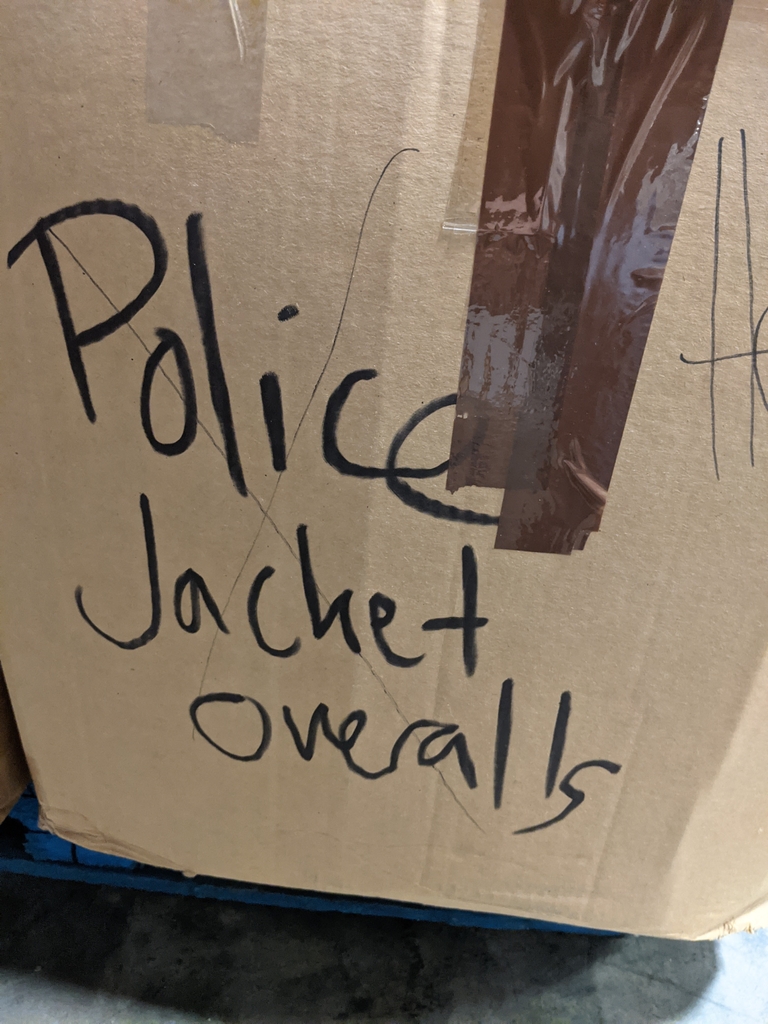 Police
Jacket
overalls